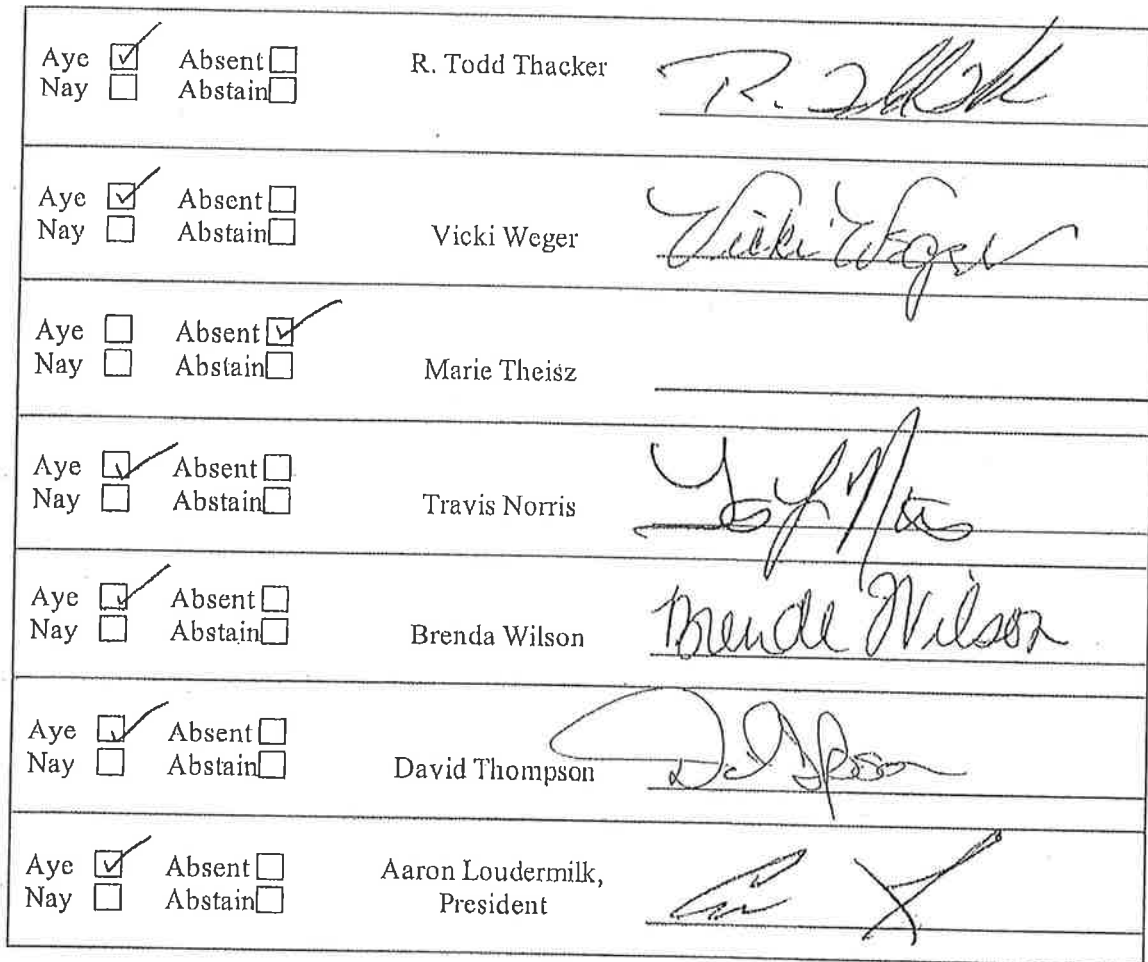 Aye ☑ Absent ☐ R. Todd Thacker
Nay ☐ Abstain ☐
Aye ☑ Absent ☐
Nay ☐ Abstain ☐ Vicki Weger Vicki Weger
Aye ☐ Absent ☑
Nay ☐ Abstain ☐ Marie Theisz
Aye ☑ Absent ☐
Nay ☐ Abstain ☐ Travis Norris
Aye ☑ Absent ☐
Nay ☐ Abstain ☐ Brenda Wilson Brenda Wilson
Aye ☑ Absent ☐
Nay ☐ Abstain ☐ David Thompson
Aye ☑ Absent ☐ Aaron Loudermilk,
Nay ☐ Abstain ☐ President